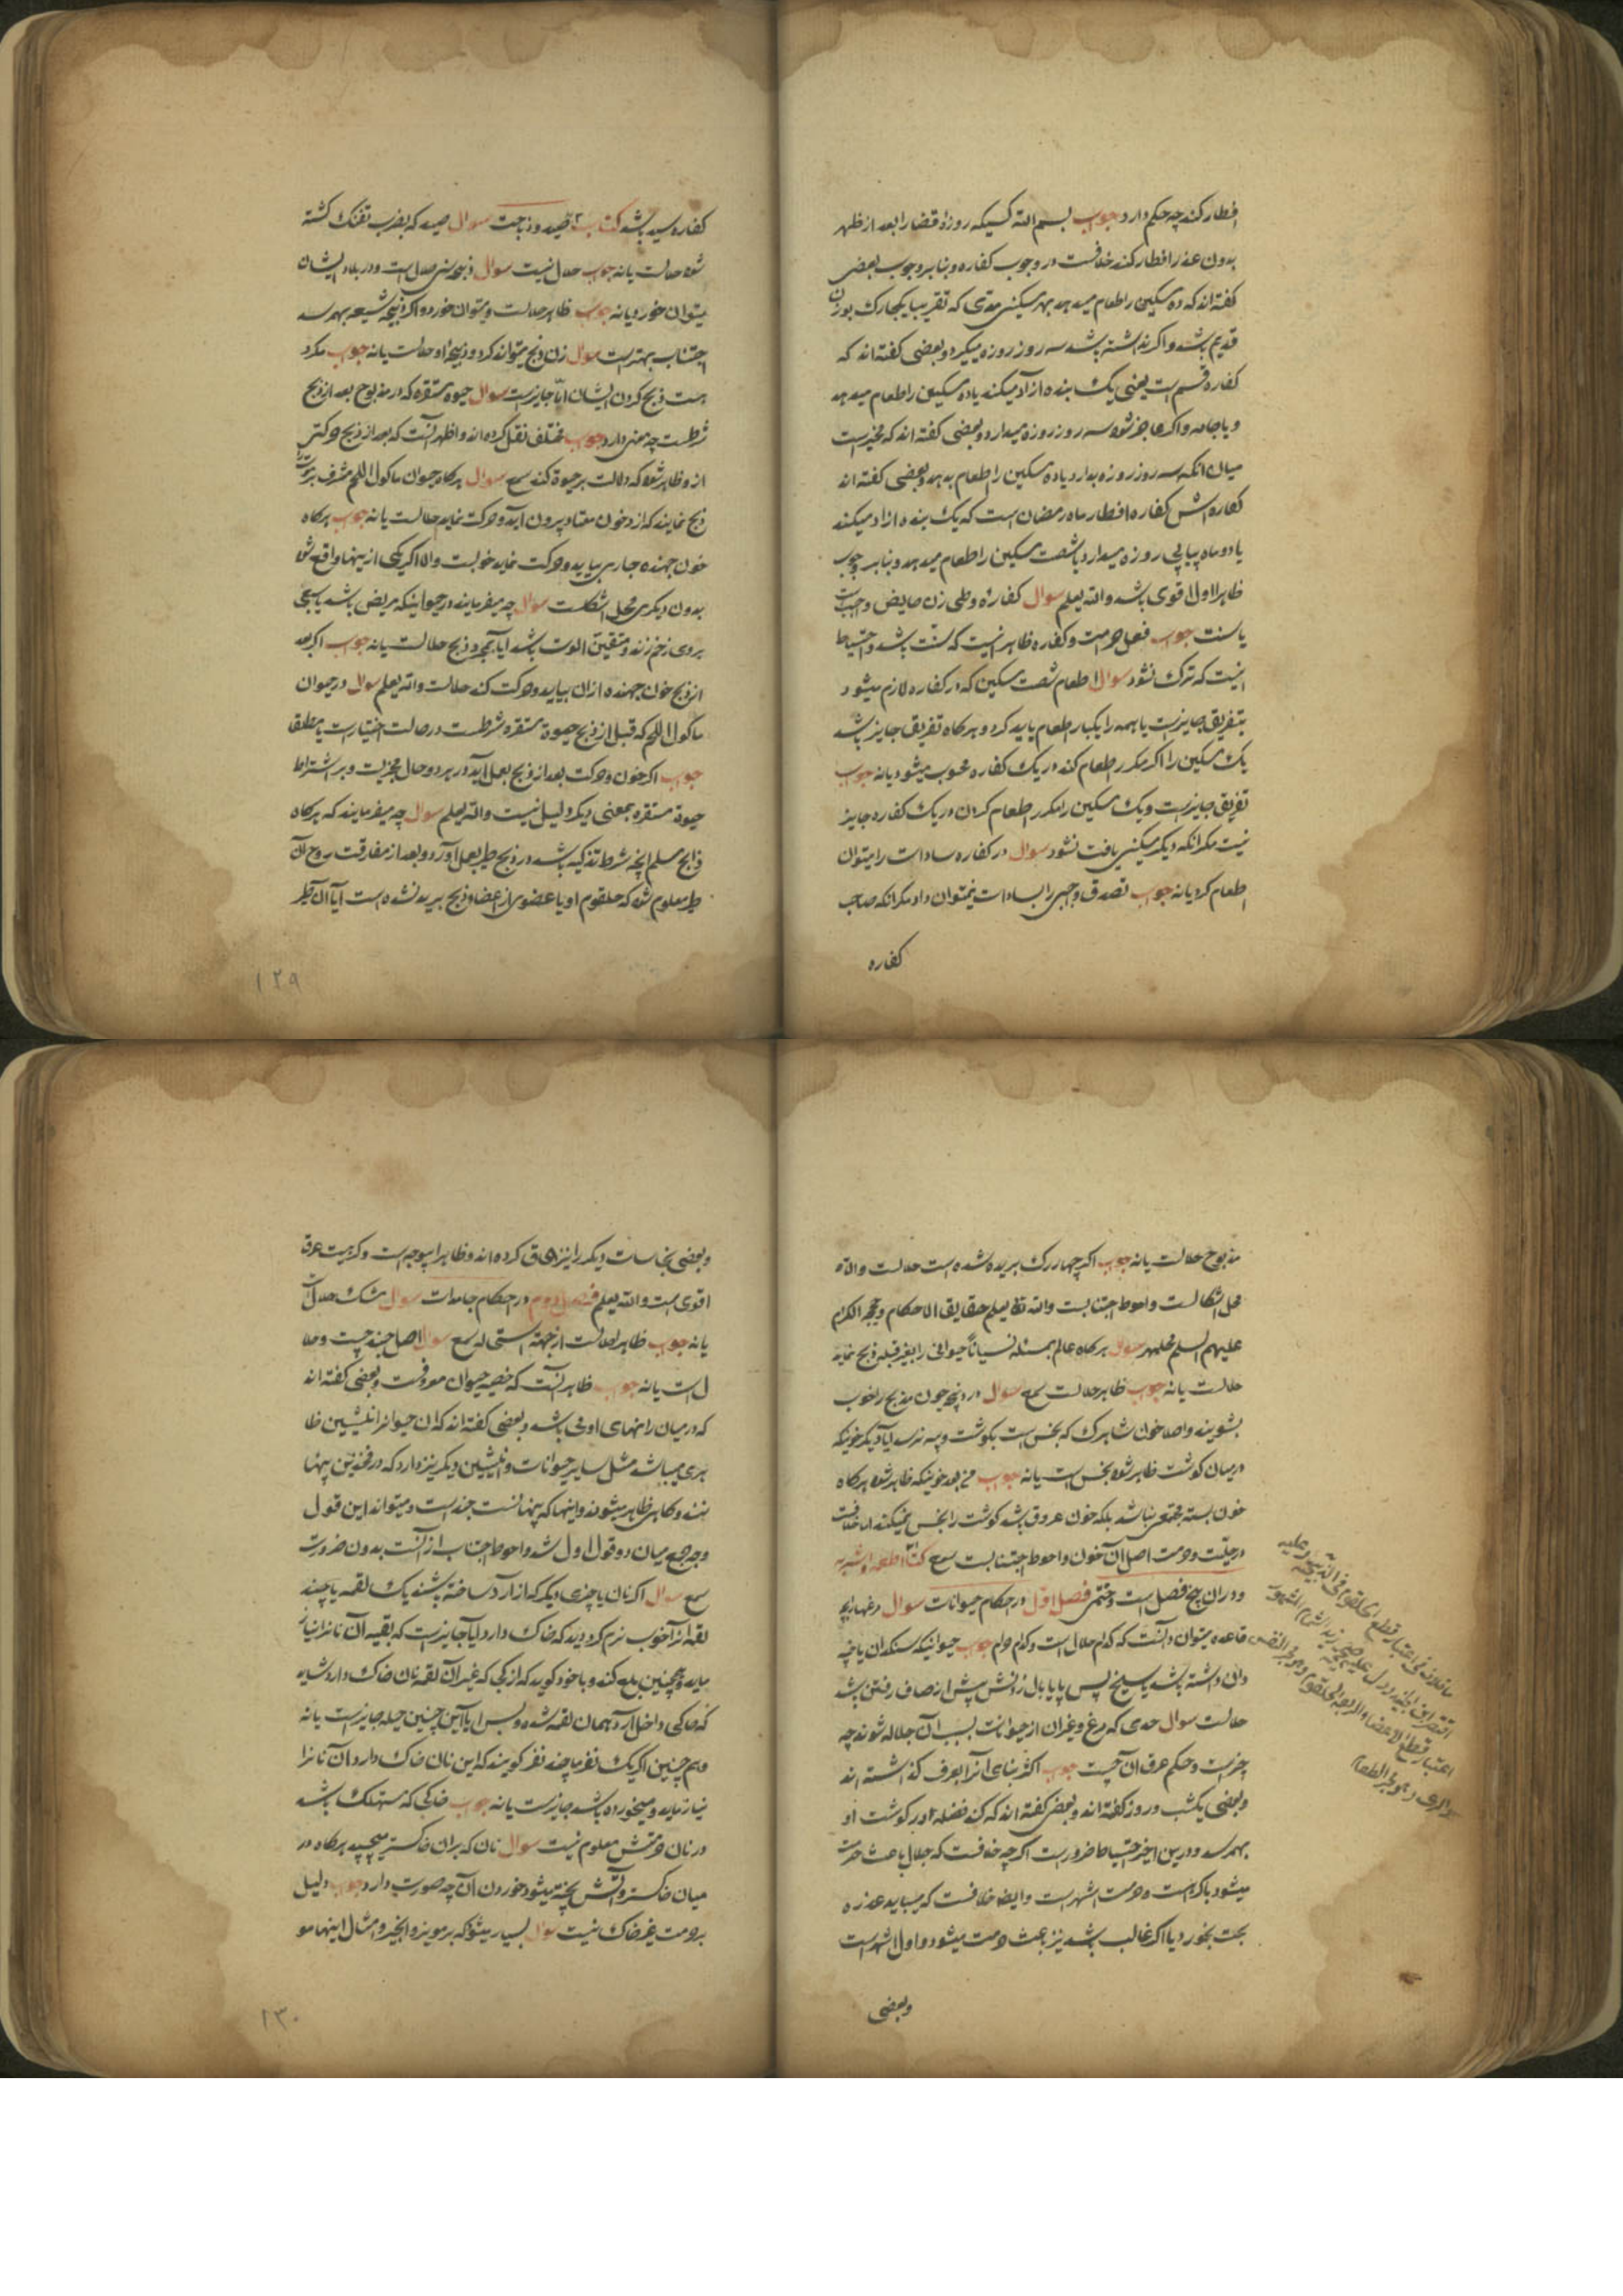 افطار کند چه حکم دارد جواب بسم الله کسیکه روزهٔ قضا را بعد از ظهر
بدون عذر افطار کند خلافست در وجوب کفاره و بنابر وجوب بعضی
کفته‌اند که ده مسکین را طعام میدهد بهر مسکینی مدی که تقریبا یکچارک بوزن
قدیم باشد و اکر نداشته باشد سه روز روزه میکیرد و بعضی کفته‌اند که
کفاره قسم است یعنی یک بنده آزاد میکند یا ده مسکین را طعام میدهد
و یا جامه و اکر عاجز شود سه روز روزه میدارد و بعضی کفته‌اند که مخیر است
میان انکه سه روز روزه بدارد یا ده مسکین را طعام بدهد و بعضی کفته‌اند
کفاره‌اش کفاره افطار ماه رمضان است که یک بنده ازاد میکند
یا دو ماه پیاپی روزه میدارد یا شصت مسکین را طعام میدهد و بنابر وجوب
ظاهرا اول اقوی باشد والله یعلم سوال کفاره وطی زن حایض واجبست
یا سنت جواب فعل حرامست و کفاره ظاهر نیست که سنت باشد و احتیاط
اینست که ترک نشود سوال اطعام شصت مسکین که در کفاره لازم میشود
بتفریق جایزست یا همه را یکبار طعام باید کرد و هرکاه تفریق جایز باشد
یک مسکین را اکر مکرر طعام کند در یک کفاره محسوب میشود یا نه جواب
تفریق جایزست و یک مسکین را مکرر طعام کردن در یک کفاره جایز
نیست مکر انکه دیکر مسکینی یافت نشود سوال در کفاره سادات را میتوان
طعام کرد یا نه جواب تصدق واجبی را بسادات نمیتوان داد مکر انکه صاحب
کفاره
کفاره سید باشد کتاب صید و ذباحت سوال صید که بضرب تفنک کشته
شود حلالست یا نه جواب حلال نیست سوال ذبیحه سنی حلال است و در بلاد ایشان
میتوان خورد یا نه جواب ظاهر حلالست و میتوان خورد و اکر ذبیحه شیعه بهم رسد
اجتناب بهتر است سوال زن ذبح میتواند کرد و ذبیحه او حلالست یا نه جواب مکروه
است ذبح کردن ایشان اما جایز است سوال حیوة مستقره که در مذبوح بعد از ذبح
شرطست چه معنی دارد جواب مختلف نقل کرده‌اند و اظهر آنست که بعد از ذبح حرکتی
از و ظاهر شود که دلالت بر حیوة کند سمع سوال هرکاه حیوان ماکول اللحم مشرف بر موت را
ذبح نمایند که از و خون معتاد بیرون آید و حرکت نماید حلالست یا نه جواب هرکاه
خون جهنده جاری بیاید و حرکت نماید خوبست والا اکر یکی از اینها واقع شود
بدون دیکری محل اشکالست سوال چه میفرمایند در حیوانیکه مریض باشد یا سبعی
بروی زخم زند و متیقن الموت باشد ایا بمجرد ذبح حلالست یا نه جواب اکر بعد
از ذبح خون جهنده از ان بیاید و حرکت کند حلالست والله یعلم سوال در حیوان
ماکول اللحم که قبل از ذبح حیوة مستقره شرطست در حالت اختیار است یا مطلقا
جواب اکر خون و حرکت بعد از ذبح بعمل آید در هر دو حال مجزیست و بر اشتراط
حیوة مستقره بمعنی دیکر دلیل نیست والله یعلم سوال چه میفرمایند که هرکاه
ذابح مسلم انچه شرط تذکیه باشد در ذبح طیر بعمل آورد و بعد از مفارقت روح آن
طیر معلوم شد که حلقوم او یا عضوی از اعضاء ذبح بریده نشده است آیا آن طیر
۱۲۹
مذبوح حلالست یا نه جواب اکر چهار رک بریده شده است حلالست والا
محل اشکالست و احوط اجتنابست والله تعالی یعلم حقایق الاحکام و حججه الکرام
علیهم السلم سوال هرکاه عالم بمسئله نسیانا حیوانی را بغیر قبله ذبح نماید
حلالست یا نه جواب ظاهر حلالست سمع سوال در ذبح چون مذبح را خوب
بشویند و اصلا خون شاهرک که نجس است بکوشت و پیه نرسد آیا دیکر خونیکه
در میان کوشت ظاهر شود نجس است یا نه جواب من بعد خونیکه ظاهر شود هرکاه
خون بسته مجتمعی نباشد بلکه خون عروق باشد کوشت را نجس نمیکند اما خلافست
در حلیت و حرمت اصل آن خون و احوط اجتنابست سمع کتاب اطعمه و اشربه
و در ان پنج فصل است و ختمی فصل اول در احکام حیوانات سوال مرغها را بچه
قاعده میتوان دانست که کدام حلال است و کدام حرام جواب حیوانیکه سنکدان یا چینه
دان داشته باشد یا سیخ پس پا یا بال زدنش بیش از صاف رفتن باشد
حلالست سوال حدی که مرغ و غیر ان از حیوانات بسبب آن جلاله شوند چه
چیزست و حکم عرق ان چیست جواب اکثر بنای آنرا بعرف کذاشته‌اند
و بعضی یکشب و روز کفته‌اند و بعضی کفته‌اند که کند فضله او در کوشت او
بهم رسد و درین اخیر احتیاط ضرورست اکر چه خلافست که جلال باعث حرمت
میشود یا کراهت و حرمت اشهر است و ایضا خلافست که میباید عذره
بحت بخورد یا اکر غالب باشد نیز باعث حرمت میشود و اول اشهر است
و بعضی
و بعضی نجاسات دیکر را نیز الحاق کرده‌اند و ظاهرا بیوجه است و کراهیت عرق
اقوی است والله یعلم فصل دوم در احکام جامدات سوال مشک حلال است
یا نه جواب ظاهر حلالست از جهة استحاله سمع سوال اصل جند چیست و حلا
ل است یا نه جواب ظاهر آنست که خصیه حیوان معروفست و بعضی کفته‌اند
که در میان رانهای او می باشد و بعضی کفته‌اند که ان حیوانرا انثیین ظا
هری میباشد مثل سایر حیوانات و انثیین دیکر نیز دارد که در فخذین پنها
نند و کاهی ظاهر میشوند و اینها که پنهانست جند است و میتواند این قول
وجه جمع میان دو قول اول باشد و احوط اجتناب از آنست بدون ضرورت
سمع سوال اکر نان یا چیزی دیکر که از آرد ساخته باشند یک لقمه یا چند
لقمه انرا خوب نرم کرد و دید که خاک دارد ایا جایز است که بقیه آن نانرا نیازماید
و همچنین بلع کند و با خود کوید که از کجا که غیر آن لقمه نان خاک دارد شاید
که خاکی داخل آرد همان لقمه شده و بس ایا این چنین حیله جایز است یا نه
و هم چنین اکر یک نفر یا چند نفر کویند که این نان خاک دارد و ان نانرا
نیازماید و میخورده باشد جایز است یا نه جواب خاکی که مستهلک باشد
در نان حرمتش معلوم نیست سوال نان که بران خاکستر میچسبد هرکاه در
میان خاکستر و آتش پخته میشود خوردن آن چه صورت دارد جواب دلیل
بر حرمت غیر خاک نیست سوال بسیار میشود که بر مویز و انجیر و امثال اینها مو
۱۳۰